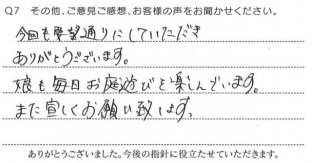 Q7 その他、ご意見ご感想、お客様の声をお聞かせください。
今回も要望通りにしていただき
ありがとうございます。
娘も毎日お庭遊びを楽しんでいます。
また宜しくお願い致します。
ありがとうございました。今後の指針に役立たせていただきます。